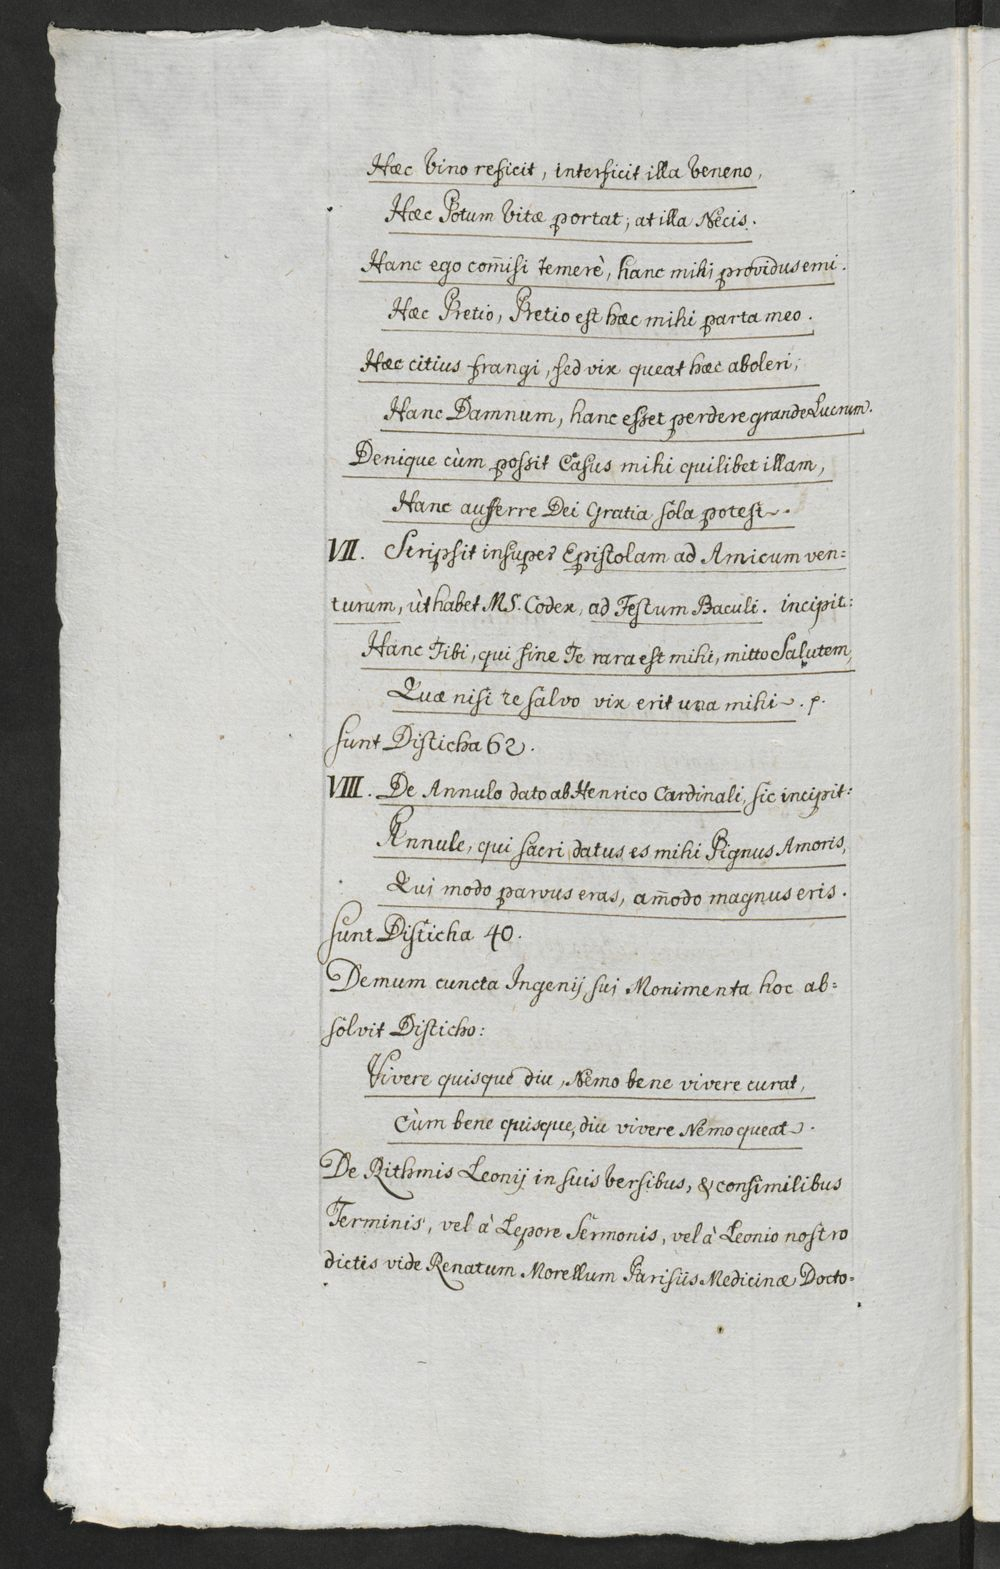 Hæc Vino reficit, interficit illa Veneno,
Hæc Potum Vitæ portat; at illa Necis.
Hanc ego com̄isi temerè, hanc mihi providus emi.
Hæc Pretio, Pretio est hæc mihi parta meo.
Hæc citius frangi, sed vix queat hæc aboleri;
Hanc Damnum, hanc esset perdere grande Lucrum.
Denique cùm possit Casus mihi quilibet illam,
Hanc aufferre Dei Gratia sola potest.
VII. Scripsit insuper Epistolam ad Amicum ven=
turum, ùt habet MS. Codex, ad Festum Baculi. incipit:
Hanc Tibi, qui sine Te rara est mihi, mitto Salutem,
Quæ nisi te salvo vix erit una mihi. p.
sunt Disticha 62.
VIII. De Annulo dato ab Henrico Cardinali, sic incipit:
Annule, qui sacri datus es mihi Pignus Amoris,
Qui modo parvus eras, am̄odo magnus eris.
sunt Disticha 40.
Demum cuncta Ingenij sui Monimenta hoc ab=
solvit Disticho:
Vivere quisque diu, Nemo bene vivere curat,
Cùm bene quisque, diu vivere Nemo queat.
De Rithmis Leonij in suis Versibus, & consimilibus
Terminis, vel à Lepore Sermonis, vel à Leonio nostro
dictis vide Renatum Morellum Parisiis Medicinæ Docto=